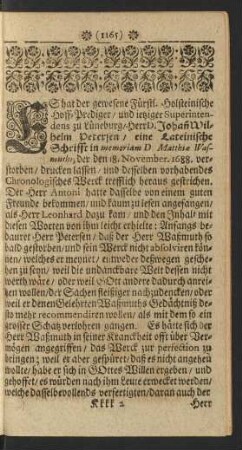 (1165)
ES hat der gewesene Fürstl.-Holsteinische
Hoff-Prediger/ und itziger Superinten-
dens zu Lüneburg/ Herr D. Johañ Wil-
helm Petersen/ eine Lateinische
Schrifft in memoriam D. Matthiæ Was-
muths, der den 18. November. 1688. ver-
storben/ drucken lassen/ und desselben vorhabendes
Chronologisches Werck trefflich heraus gestrichen.
Der Herr Antoni hatte dasselbe von einem guten
Freunde bekommen/ und kaum zu lesen angefangen/
als Herr Leonhard dazu kam/ und den Inhalt mit
diesen Worten von ihm leicht erhielte: Anfangs be-
dauret Herr Petersen/ daß der Herr Waßmuth so
bald gestorben/ und sein Werck nicht absolviren kön-
nen/ welches er meynet/ entweder deßwegen gesche-
hen zu seyn/ weil die undanckbare Welt dessen nicht
werth wäre/ oder weil GOtt andere dadurch anrei-
tzen wollen/ der Sachen fleißiger nachzudencken/ oder
weil er denen Gelehrten Waßmuths Gedächtniß de-
sto mehr recommendiren wollen/ als mit dem so ein
grosser Schatz verlohren gangen. Es hätte sich der
Herr Waßmuth in seiner Kranckheit offt über Ver-
mögen angegriffen/ das Werck zur perfection zu
bringen; weil er aber gespüret/ daß es nicht angehen
wollte/ habe er sich in GOttes Willen ergeben/ und
gehoffet/ es würden nach ihm Leute erwecket werden/
welche dasselbe vollends verfertigten/ daran auch der
Kkkk 2 Herr